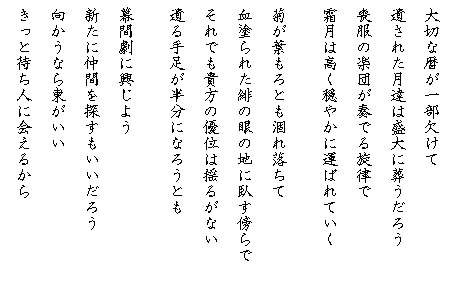 大切な暦が一部欠けて
遺された月達は盛大に葬うだろう
喪服の楽団が奏でる旋律で
霜月は高く穏やかに運ばれていく
菊が葉もろとも涸れ落ちて
血塗られた緋の眼の地に臥す傍らで
それでも貴方の優位は揺るがない
遺る手足が半分になろうとも
幕間劇に興じよう
新たに仲間を探すもいいだろう
向かうなら東がいい
きっと待ち人に会えるから